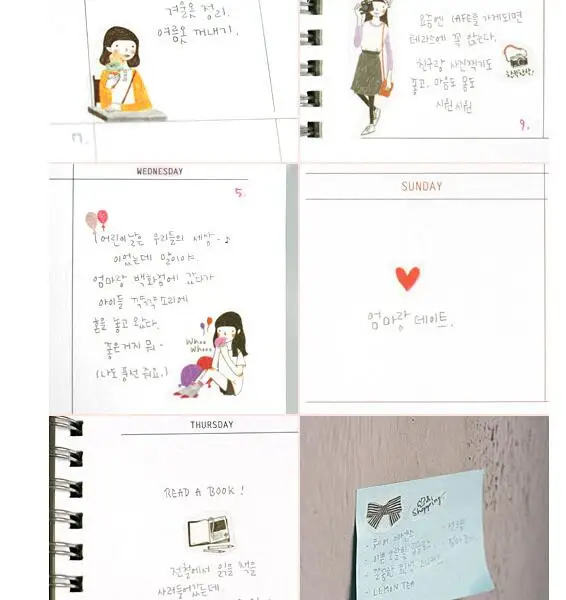 겨울옷 정리.
여름옷 꺼내기.
요즘엔 CAFE를 가게되면
테라스에 꼭 앉는다.
친구랑 사진찍기도
좋고. 마음도 몸도
시원시원
찰칵찰칵!
9.
WEDNESDAY
5.
어린이날은 우리들의 세상-♪
이었는데 말이야.
엄마랑 백화점에 갔다가
아이들 꺅꺅 소리에
혼을 놓고 왔다.
좋은거지 뭐-
(나도 풍선 줘요.)
Whoo
Whooo
SUNDAY
엄마랑 데이트.
THURSDAY
READ A BOOK!
전철에서 읽을 책을
사러들어갔는데.
Shopping
- LEMON TEA